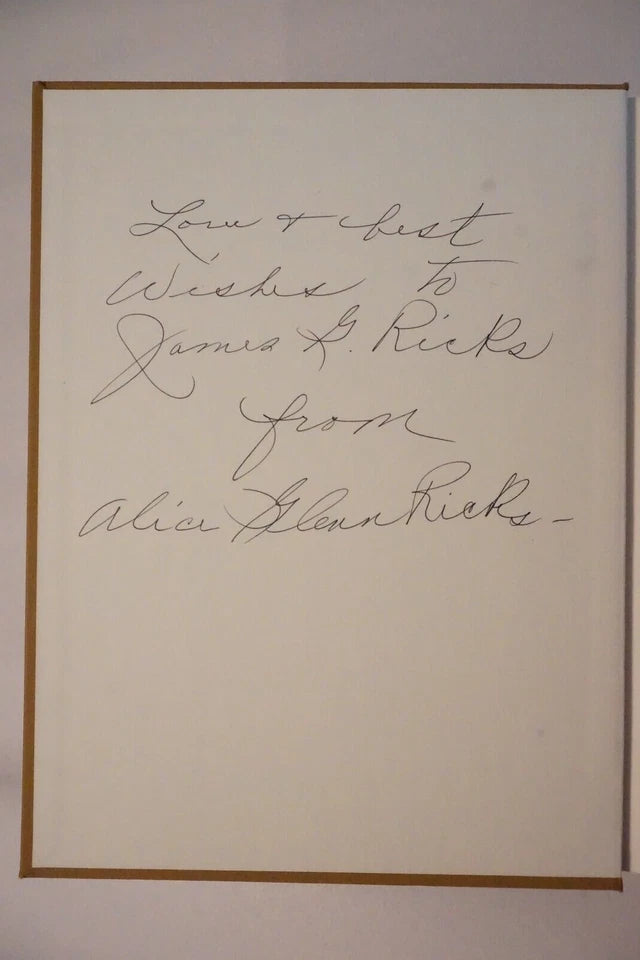 Love + best
Wishes to
James G. Ricks
from
Alice Glenn Ricks -